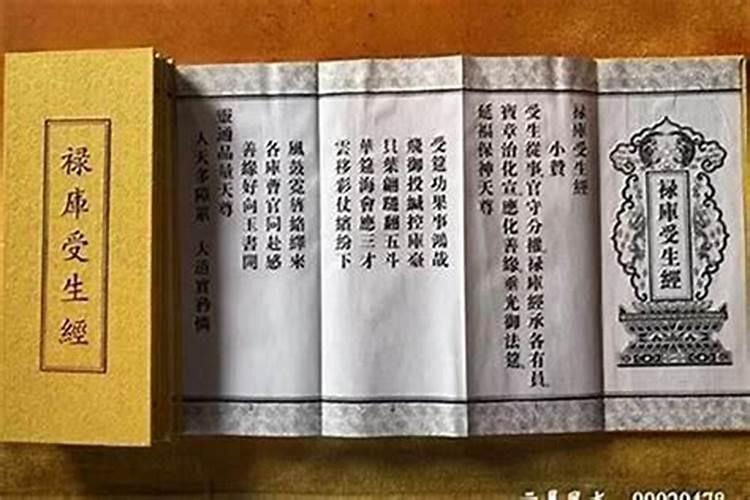 祿庫受生經
祿庫受生經
祿庫受生經
小贊
受生從事官守分權祿庫經承各有員
寶章治化宣應化善緣垂光御法筵
延福保神天尊
受筵功果事鴻哉
飛御投緘控庫臺
貝葉翩翻五斗
華筵海會應三才
雲移彩仗繽紛下
風鼓霓旌絡繹來
各庫曹官同赴感
善緣好向玉書開
靈通品量天尊
人天多障 大道實矜憐
99929478